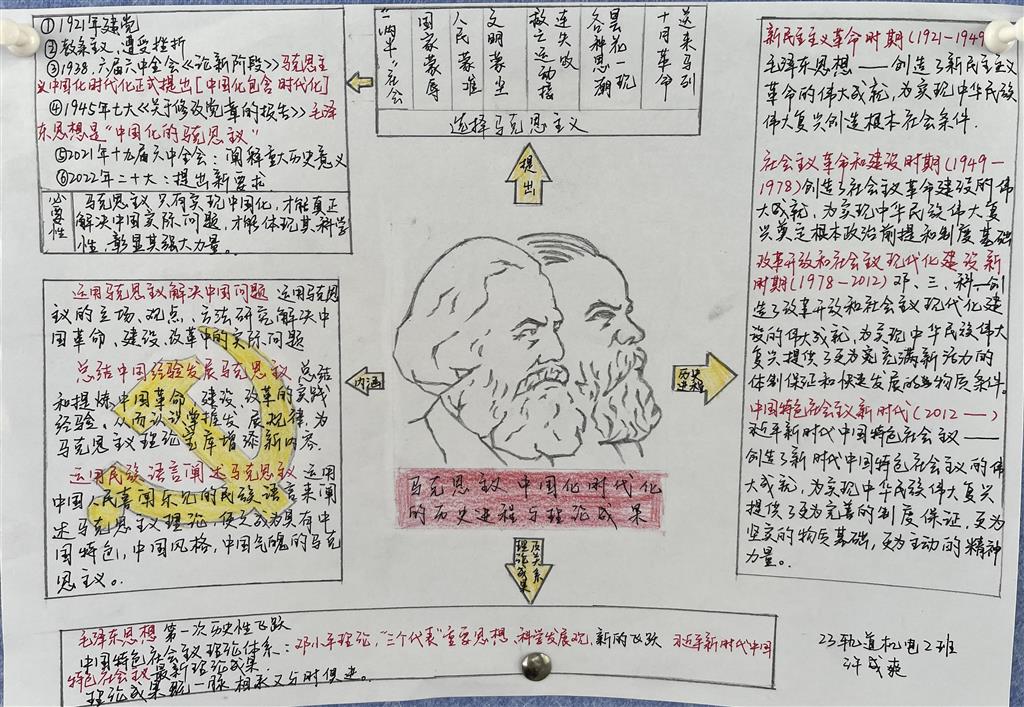 ①1921年建党
②教条主义,遭受挫折
③1938.六届六中全会《论新阶段》马克思主
义中国化时代化正式提出[中国化包含时代化]
④1945年七大《关于修改党章的报告》毛泽
东思想是“中国化的马克思主义”
⑤2021年十九届六中全会:阐释重大历史意义
⑥2022年二十大:提出新要求
必要性
马克思主义只有实现中国化,才能真正
解决中国实际问题,才能体现其科学
性,彰显其强大力量。
“两半”社会
国家蒙辱
人民蒙难
文明蒙尘
救亡运动接
连失败
各种思潮
昙花一现
十月革命
送来马列
选择马克思主义
提出
运用马克思主义解决中国问题 运用马克思
主义的立场、观点、方法研究解决中
国革命、建设、改革中的实际问题
总结中国经验发展马克思主义 总结
和提炼中国革命、建设、改革的实践
经验,从而认识掌握发展规律,为
马克思主义理论宝库增添新内容.
运用民族语言阐述马克思主义 运用
中国人民喜闻乐见的民族语言来阐
述马克思主义理论,使之成为具有中
国特色,中国风格,中国气魄的马克
思主义。
内涵
马克思主义中国化时代化
的历史进程与理论成果
历史
进程
新民主主义革命时期(1921-1949
毛泽东思想——创造了新民主主义
革命的伟大成就,为实现中华民族
伟大复兴创造根本社会条件.
社会主义革命和建设时期(1949-
1978)创造了社会主义革命建设的伟
大成就,为实现中华民族伟大复
兴奠定根本政治前提和制度基础
改革开放和社会主义现代化建设新
时期(1978-2012)邓、三、科—创
造了改革开放和社会主义现代化建
设的伟大成就,为实现中华民族伟大
复兴提供了更为充满新活力的
体制保证和快速发展的物质条件.
中国特色社会主义新时代(2012——)
习近平新时代中国特色社会主义——
创造了新时代中国特色社会主义的伟
大成就,为实现中华民族伟大复兴
提供了更为完善的制度保证,更为
坚实的物质基础,更为主动的精神
力量。
理论成果
及关系
毛泽东思想 第一次历史性飞跃
中国特色社会主义理论体系:邓小平理论,“三个代表”重要思想、科学发展观,新的飞跃 习近平新时代中国
特色社会主义最新理论成果
理论成果 一脉相承又与时俱进。
23轨道机电2班
许成爽